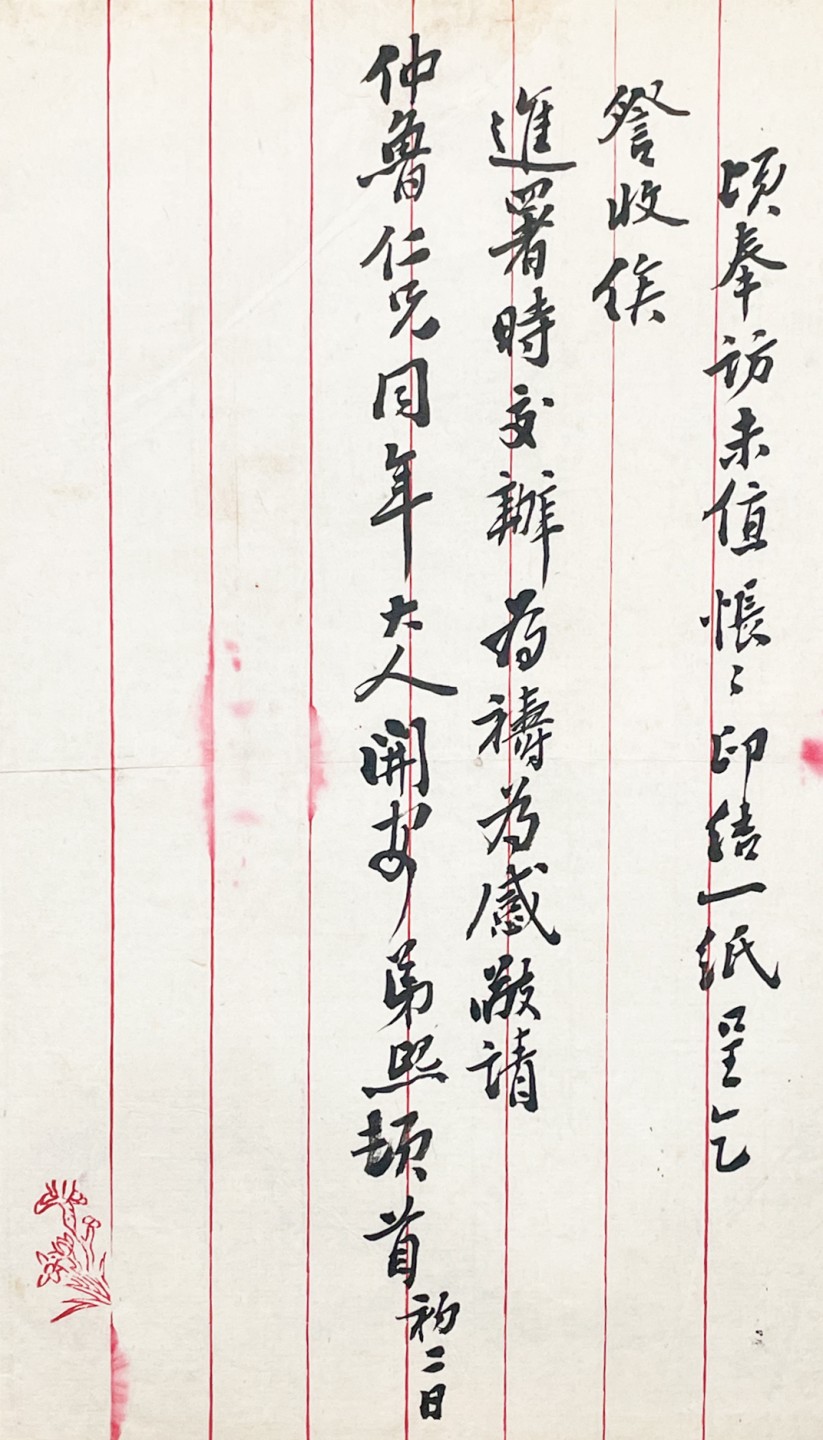 頃奉訪未值悵〻印结一紙呈乞
詧收俟
進署時交辦為禱為感敬請
仲魯仁兄同年大人開安弟熙頓首初二日